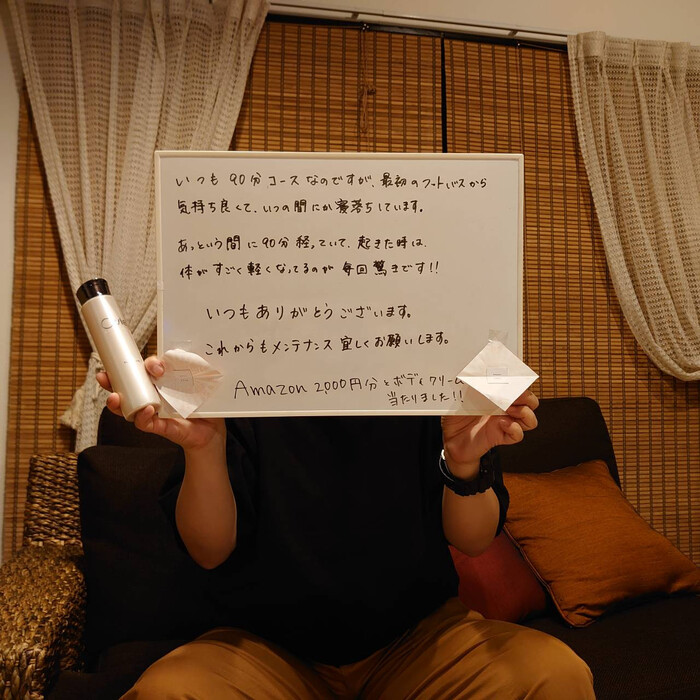 いつも90分コースなのですが、最初のフットバスから
気持ち良くて、いつの間にか寝落ちしています。
あっという間に90分経っていて、起きた時は、
体がすごく軽くなってるのが毎回驚きです!!
いつもありがとうございます。
これからもメンテナンス宜しくお願いします。
Amazon 2,000円分とボディクリーム
当たりました!!